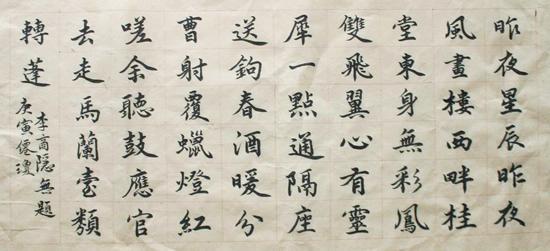 昨夜星辰昨夜
風畫樓西畔桂
堂東身無彩鳳
雙飛翼心有靈
犀一點通隔座
送鉤春酒暖分
曹射覆蠟燈紅
嗟余聽鼓應官
去走馬蘭臺類
轉蓬
李商隱無題
庚寅僊瓊